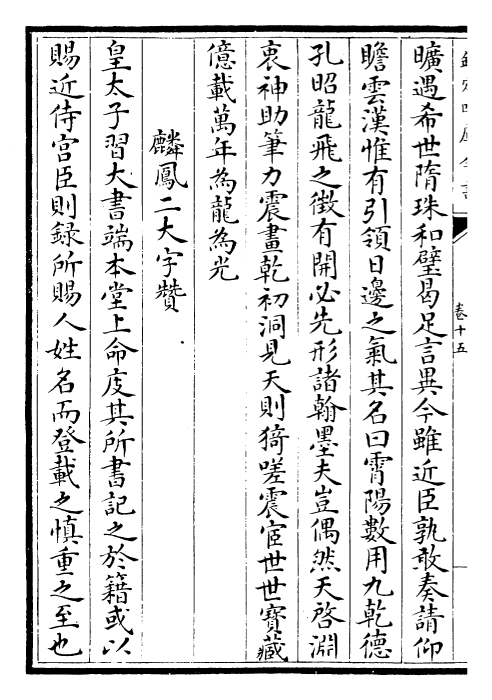 欽定四庫全書
卷十五
曠遇希世隋珠和璧曷足言異今雖近臣孰敢奏請仰
瞻雲漢惟有引領日邊之氣其名曰霄陽數用九乾德
孔昭龍飛之徵有開必先形諸翰墨夫豈偶然天啓淵
衷神助筆力震畫乾初洞見天則猗嗟震宧世世寳藏
億載萬年為龍為光
麟鳳二大字贊
皇太子習大書端本堂上命庋其所書記之於籍或以
賜近侍宫臣則録所賜人姓名而登載之慎重之至也